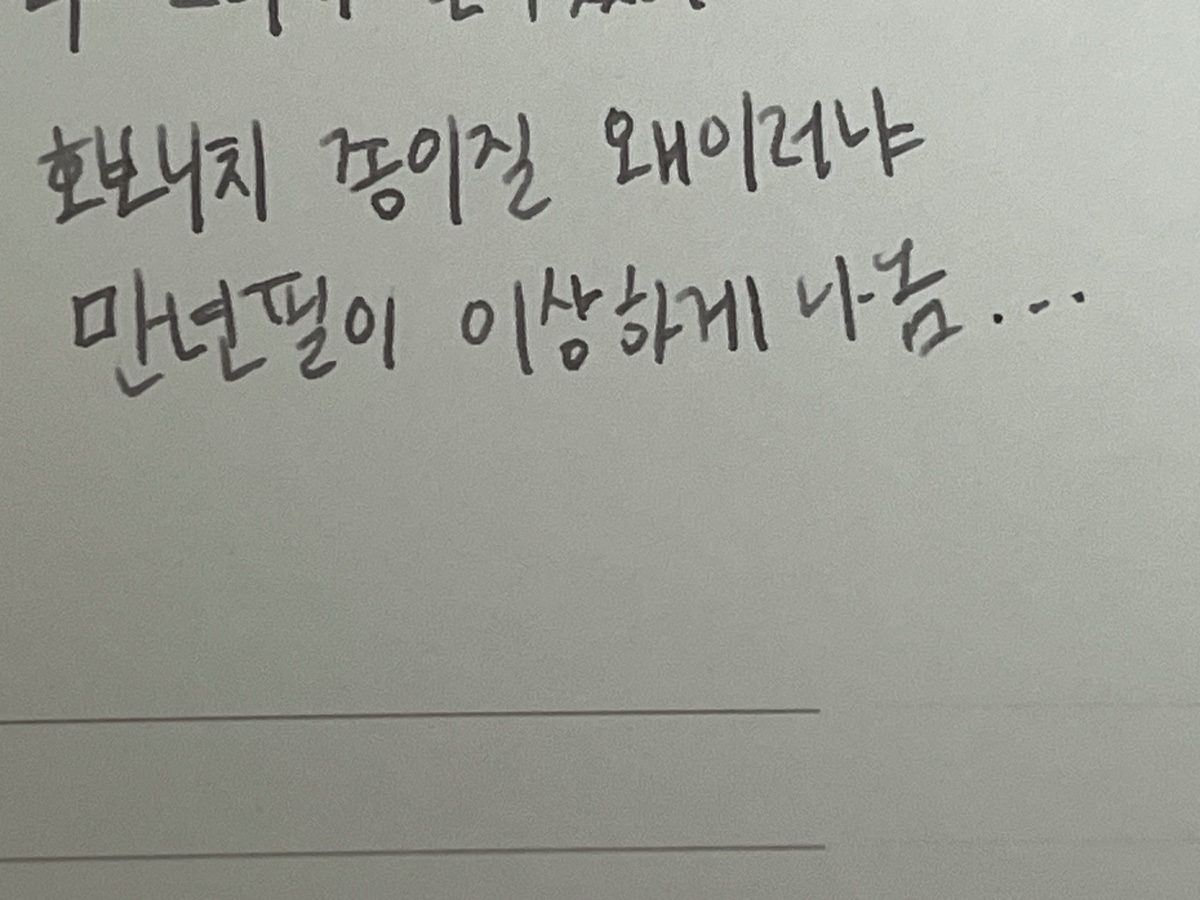 호보니치 종이질 왜이러냐
만년필이 이상하게 나옴...